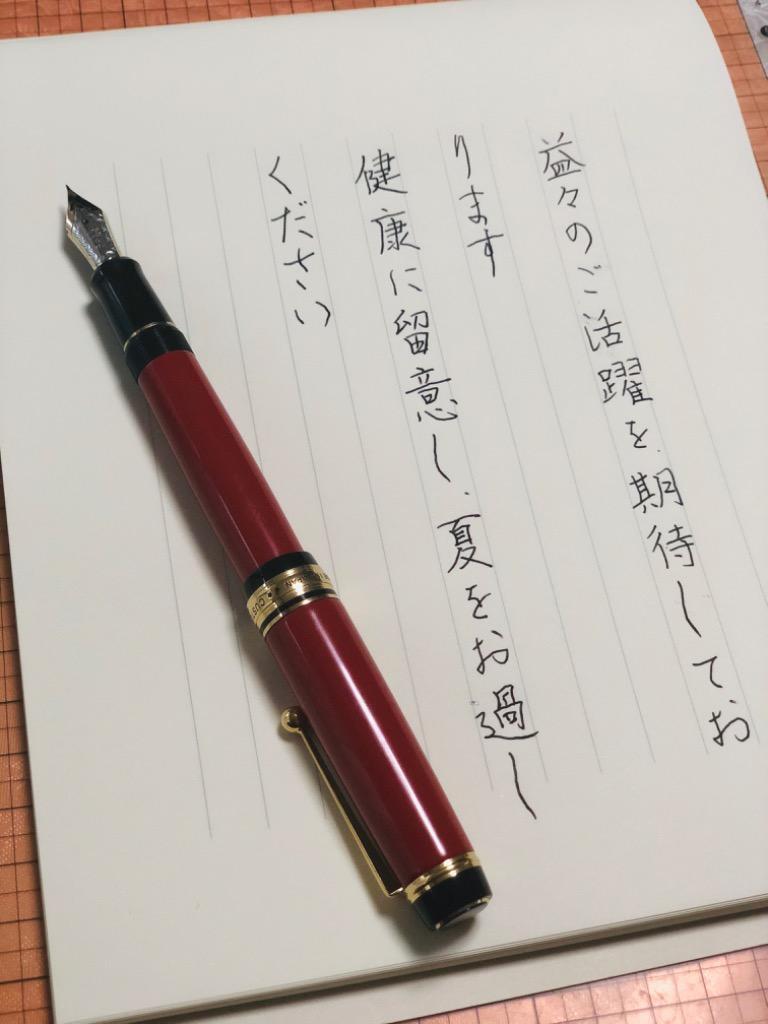 益々のご活躍を期待してお
ります
健康に留意し、夏をお過し
ください
CUS